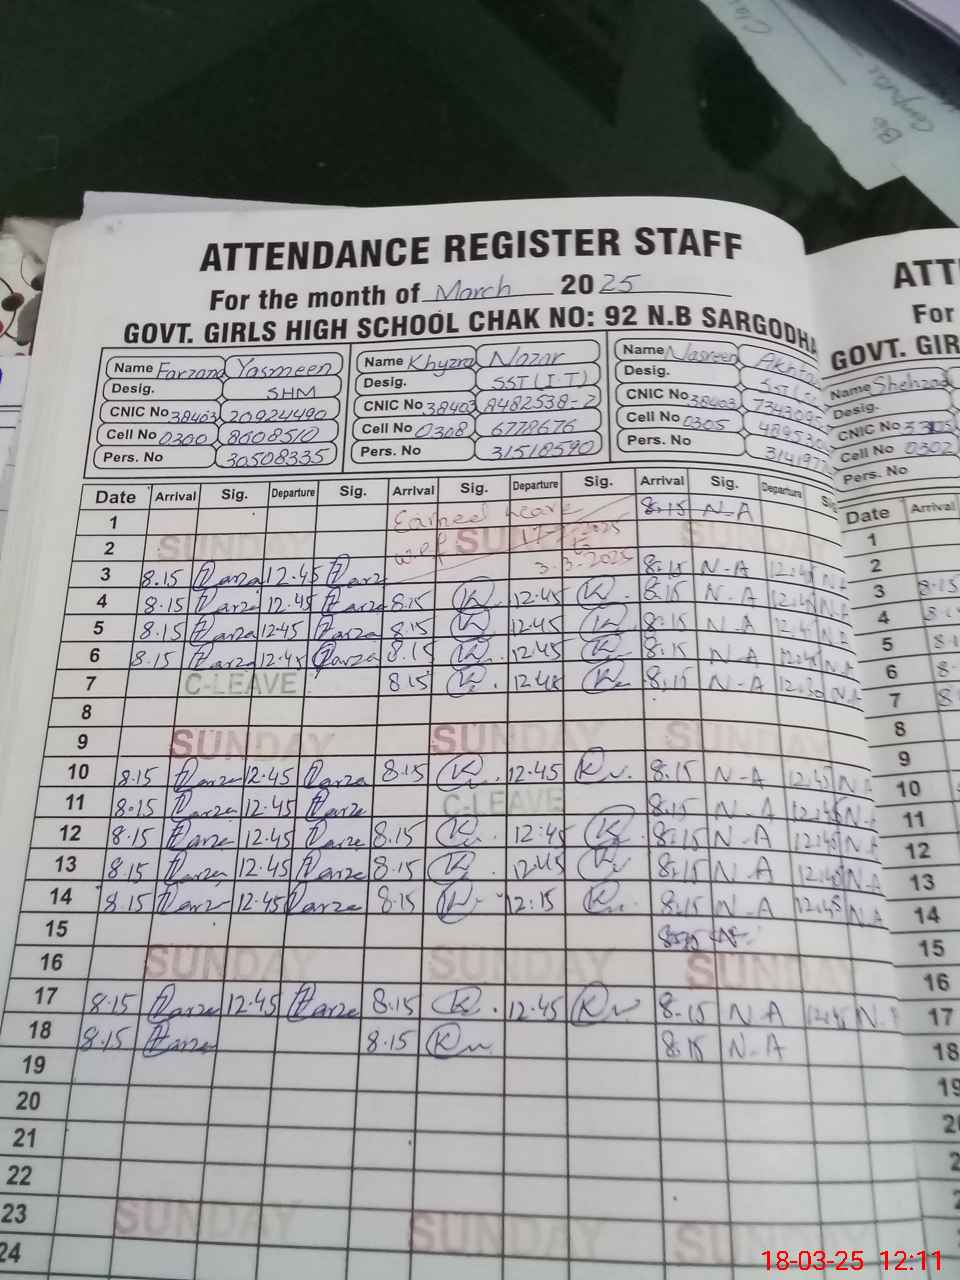 ATTENDANCE REGISTER STAFF
For the month of March 2025
GOVT. GIRLS HIGH SCHOOL CHAK NO: 92 N.B SARGODHA
Name Farzana Yasmeen
Desig. SHM
CNIC No 38403 20924490
Cell No 0300 8608510
Pers. No 30508335
Name Khyzra Nazar
Desig. SST (I.T)
CNIC No 38403 8482538-2
Cell No 0308 6778676
Pers. No 31518590
Name Nasreen Akhtar
Desig.
CNIC No 38403
Cell No 0305
Pers. No
Date Arrival Sig. Departure Sig. Arrival Sig. Departure Sig. Arrival Sig. Departure
1 Earned Leave 8.15 N-A
2 SUNDAY w.e.f SUNDAY 2025 SUNDAY
3 8.15 Farza 12.45 Farza 3-3-2025 8.15 N-A 12.45 N-A
4 8.15 Farza 12.45 Farza 8.15 K 12.45 K 8.15 N-A 12.45 N-A
5 8.15 Farza 12.45 Farza 8.15 K 12.45 K 8.15 N-A 12.45 N-A
6 8.15 Farza 12.45 Farza 8.15 K 12.45 K 8.15 N-A 12.45 N-A
7 C-LEAVE 8.15 K 12.45 K 8.15 N-A 12.30 N-A
8
9 SUNDAY SUNDAY SUNDAY
10 8.15 Farza 12.45 Farza 8.15 K 12.45 K 8.15 N-A 12.45 N-A
11 8.15 Farza 12.45 Farza C-LEAVE 8.15 N-A 12.45 N-A
12 8.15 Farza 12.45 Farza 8.15 K 12.45 K 8.15 N-A 12.45 N-A
13 8.15 Farza 12.45 Farza 8.15 K 12.45 K 8.15 N-A 12.45 N-A
14 8.15 Farza 12.45 Farza 8.15 K 12.15 K 8.15 N-A 12.45 N-A
15
16 SUNDAY SUNDAY SUNDAY
17 8.15 Farza 12.45 Farza 8.15 K 12.45 K 8.15 N-A 12.45 N-A
18 8.15 Farza 8.15 K 8.15 N-A
19
20
21
22
23 SUNDAY SUNDAY SUNDAY
24
For
Name Shehzad
Desig.
CNIC No
Cell No 0302
Pers. No
Date Arrival
1
2
3 8.15
4
5
6
7
8
9
10
11
12
13
14
15
16
17
18
18-03-25 12:11